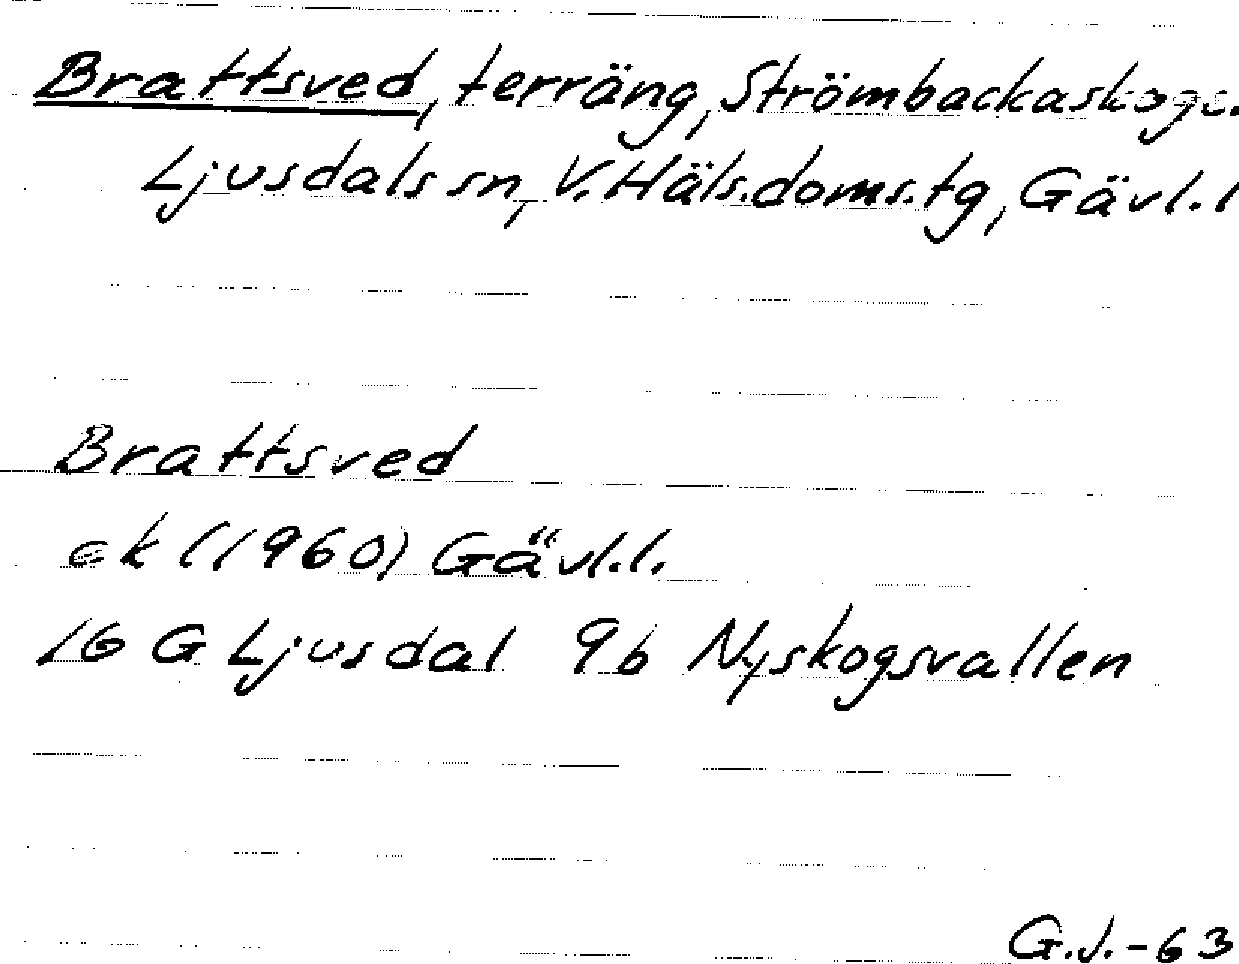 Brattsved, terräng, Strömbackaskoge.
Ljusdals sn, V. Häls. doms. tg, Gävl. l
Brattsved
ek (1960) Gävl. l.
16 G Ljusdal 9b Nyskogsvallen
G.J. - 63